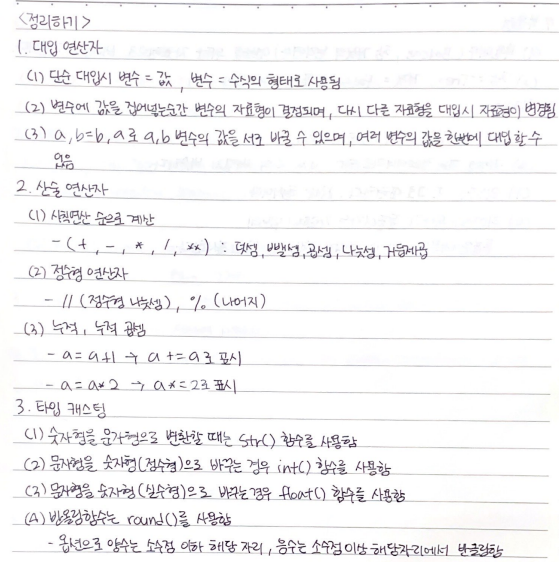 <정리하기>
1. 대입 연산자
(1) 단순 대입시 변수 = 값 , 변수 = 수식의 형태로 사용됨
(2) 변수에 값을 집어넣는순간 변수의 자료형이 결정되며, 다시 다른 자료형을 대입시 자료형이 변경됨
(3) a, b = b, a 로 a, b 변수의 값을 서로 바꿀 수 있으며, 여러 변수의 값을 한번에 대입 할 수
있음
2. 산술 연산자
(1) 사칙연산 순으로 계산
- ( + , - , * , / , ** ) : 덧셈, 뺄셈, 곱셈, 나눗셈, 거듭제곱
(2) 정수형 연산자
- // (정수형 나눗셈) , % (나머지)
(3) 누적 , 누적 곱셈
- a = a+1 → a += a로 표시
- a = a*2 → a *= 2로 표시
3. 타입 캐스팅
(1) 숫자형을 문자형으로 변환할 때는 str() 함수를 사용함
(2) 문자형을 숫자형(정수형)으로 바꾸는 경우 int() 함수를 사용함
(3) 문자형을 숫자형(실수형)으로 바꾸는 경우 float() 함수를 사용함
(4) 반올림함수는 round()를 사용함
- 옵션으로 양수는 소수점 이하 해당 자리 , 음수는 소수점 이상 해당자리에서 반올림함